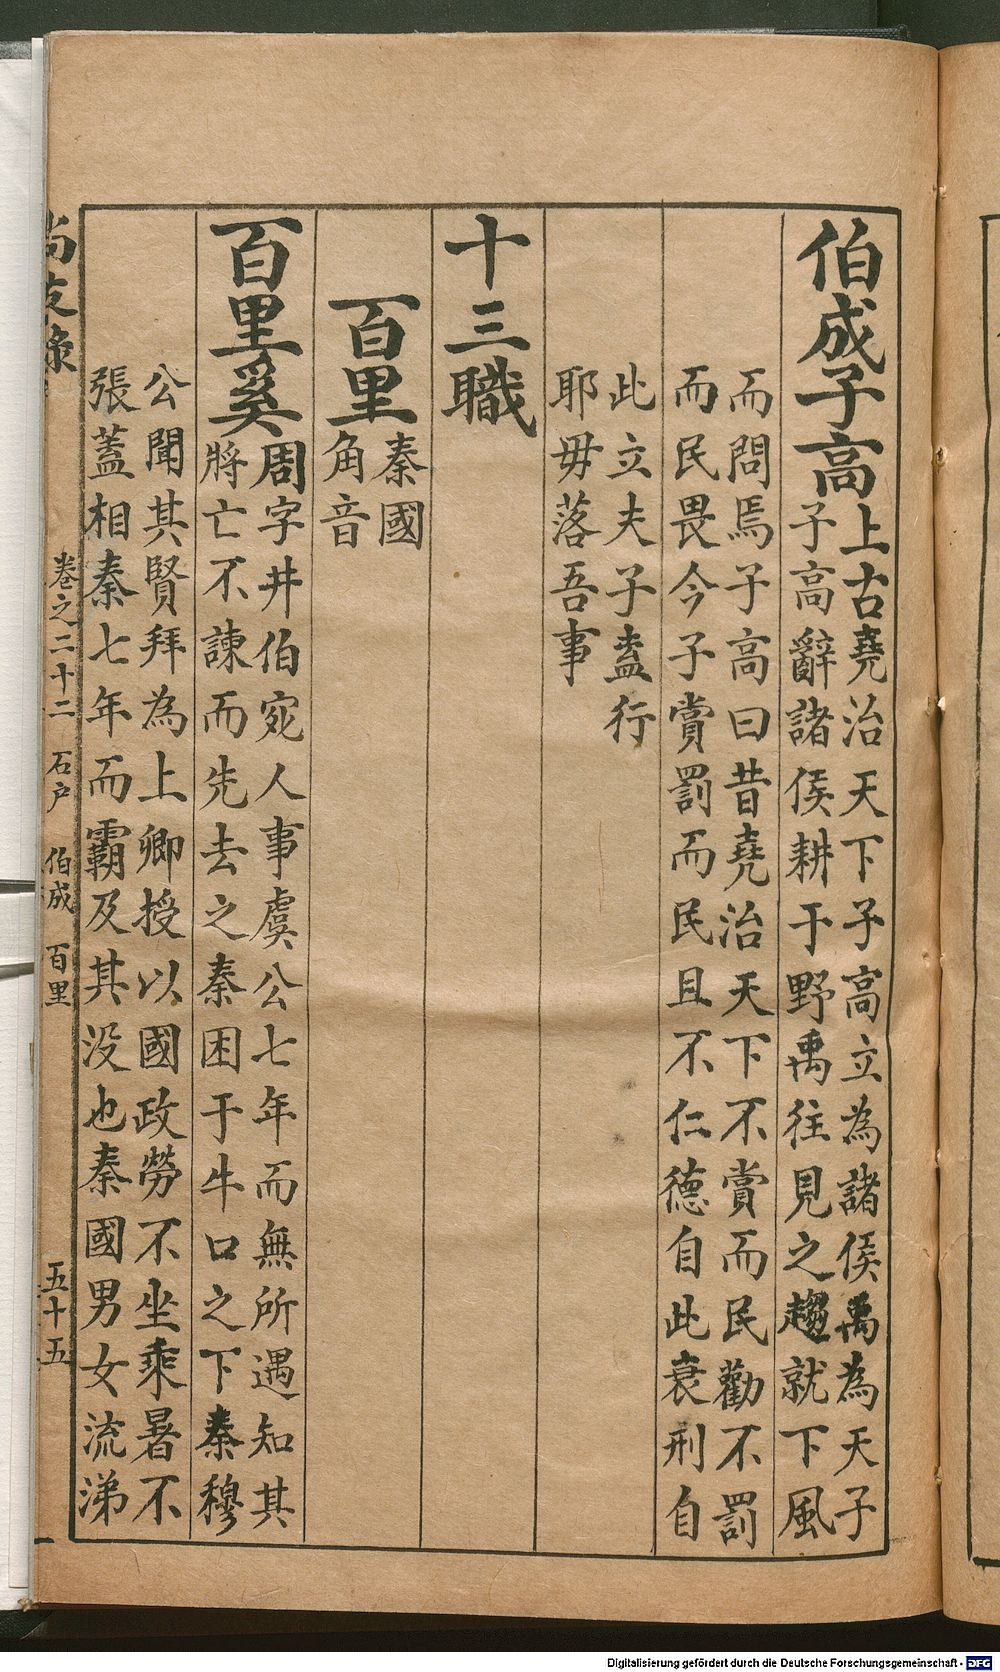 伯成子高
上古堯治天下子高立為諸侯禹為天子
子高辭諸侯耕于野禹往見之趨就下風
而問焉子高曰昔堯治天下不賞而民勸不罰
而民畏今子賞罰而民且不仁德自此衰刑自
此立夫子盍行
耶毋落吾事
十三職
百里
秦國
角音
百里奚
周字井伯宛人事虞公七年而無所遇知其
將亡不諫而先去之秦困于牛口之下秦穆
公聞其賢拜為上卿授以國政勞不坐乘暑不
張蓋相秦七年而霸及其没也秦國男女流涕
尚友錄
卷之二十二
石户
伯成
百里
五十五
Digitalisierung gefördert durch die Deutsche Forschungsgemeinschaft - DFG